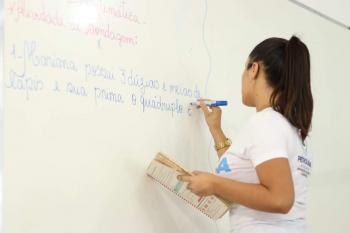 Matemática -
Atividade de Sondagem:
1- Mariana possui 3 dúzias e meia de
lápis e sua prima o quádruplo e